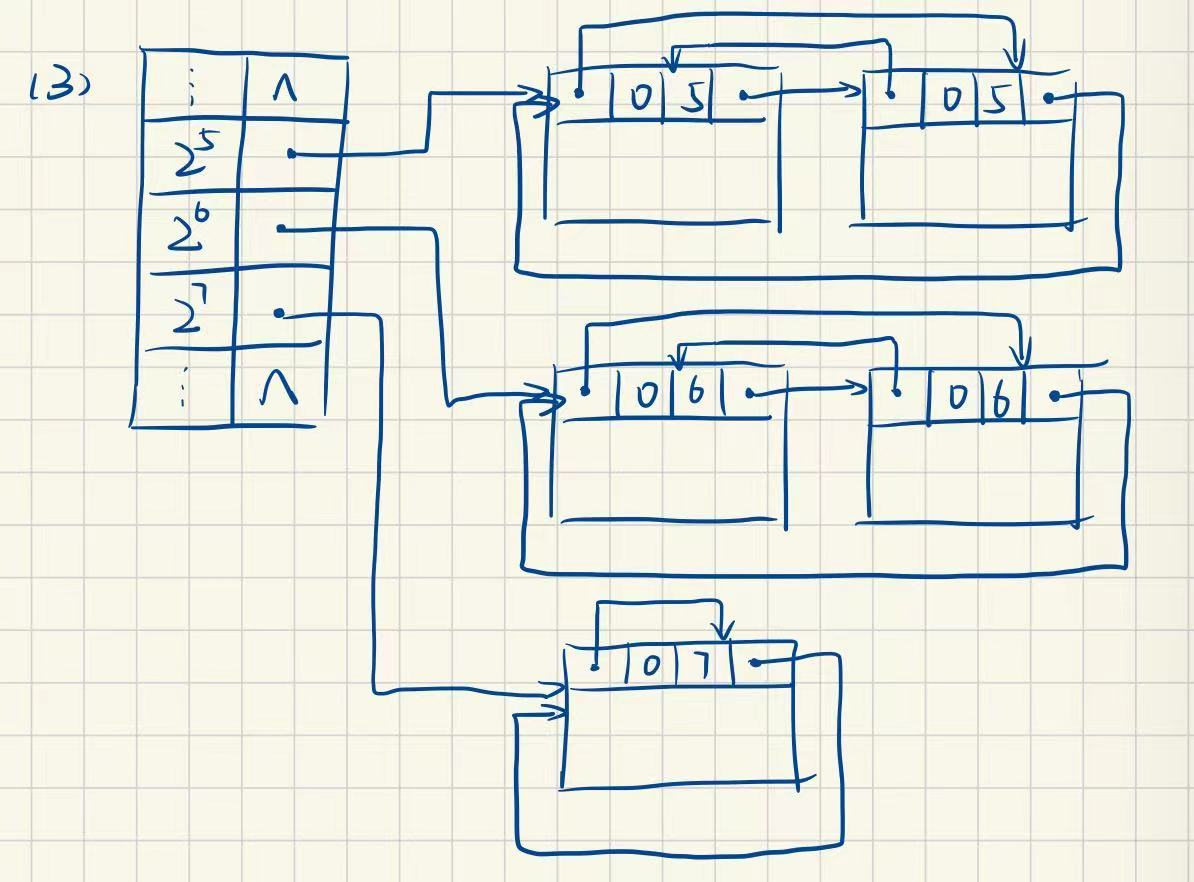 (3)
⋮ ∧
2⁵
2⁶
2⁷
⋮ ∧
0 5
0 5
0 6
0 6
0 7